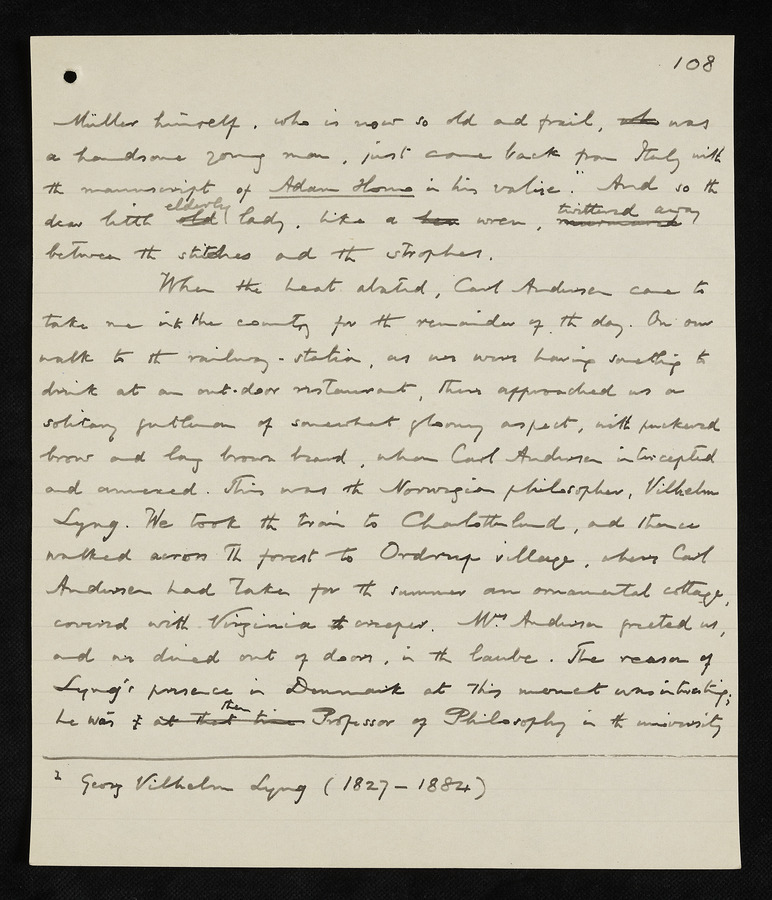 108
Müller himself, who is now so old and frail, who was
a handsome young man, just come back from Italy with
the manuscript of Adam Homo in his valise." And so the
elderly twittered away
dear little old lady, like a hen wren, murmured
between the stitches and the strophes.
When the heat abated, Carl Andersen came to
take me into the country for the remainder of the day. On our
walk to the railway-station, as we were having something to
drink at an out-door restaurant, there approached us a
solitary gentleman of somewhat gloomy aspect, with puckered
brow and long brown beard, whom Carl Andersen intercepted
and annexed. This was the Norwegian philosopher, Vilhelm
Lyng. We took the train to Charlottenlund, and thence
walked across the forest to Ordrup village, where Carl
Andersen had taken for the summer an ornamental cottage,
covered with Virginia creeper. Mrs Andersen greeted us,
and we dined out of doors, in the laube. The reason of
Lyng's presence in Denmark at this moment was interesting;
then
he was at that time Professor of Philosophy in the university
1 Georg Vilhelm Lyng (1827-1884)